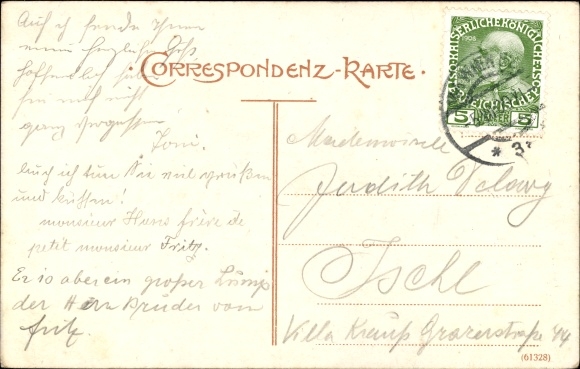 Auch ich sende Ihnen
einen herzlichen Gruß
hoffentlich haben
Sie mich nicht
ganz vergessen
Toni.
Auch ich tun Sie viel grüßen
und küssen!
monsieur Hans frère de
petit monsieur Fritz.
Er is aber ein großer Lump
der Herr Bruder von
Fritz.
CORRESPONDENZ-KARTE.
KAISERLICHE KÖNIGLICHE
1908
5 HELLER 5
* 3
Mademoiselle
Judith
Ischl
Villa Krauß Grazerstraße 44
(61328)